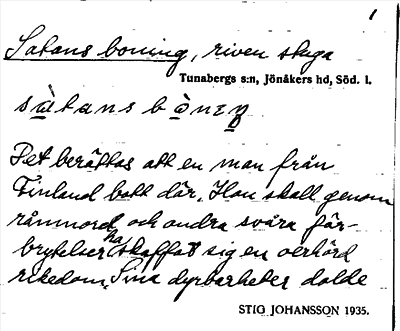 1
Satans boning, riven stuga
Tunabergs s:n, Jönåkers hd, Söd. l.
sàtans bòneŋ
Det berättas att en man från
Finland bott där. Han skall genom
rånmord och andra svåra för-
brytelser ha skaffat sig en oerhörd
rikedom. Sina dyrbarheter dolde
STIG JOHANSSON 1935.